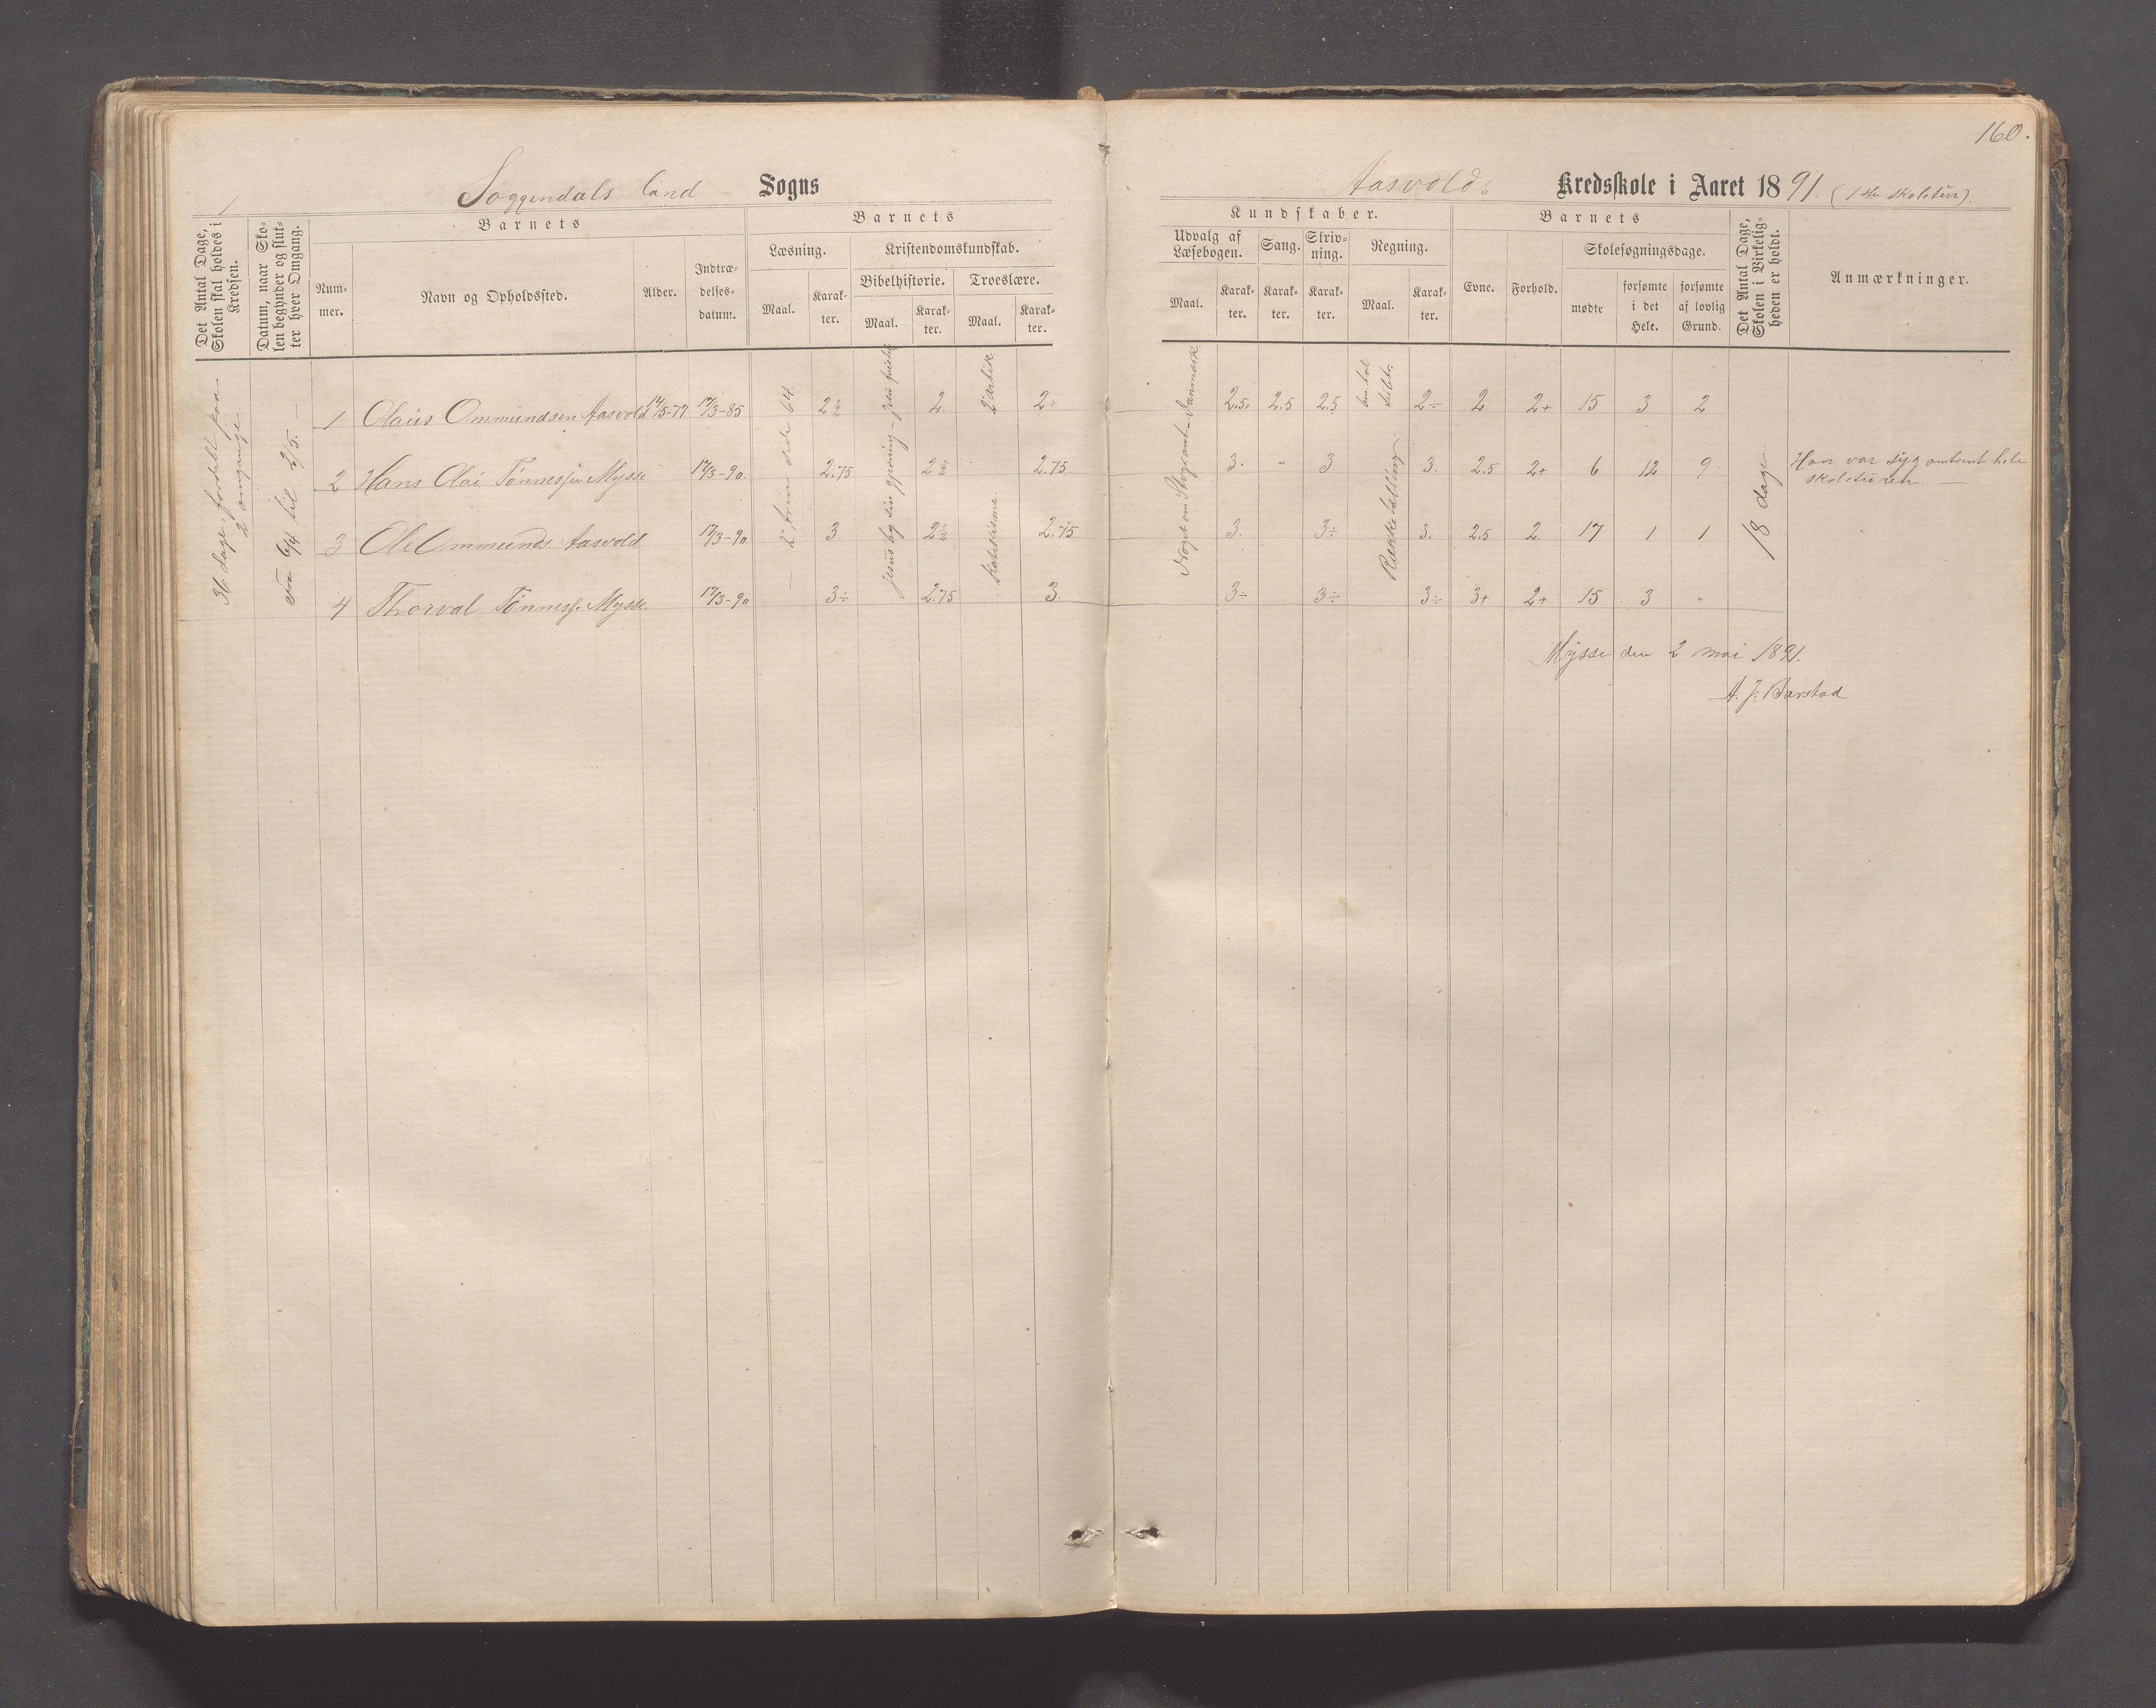 160.
Soggendals land Sogns
Aasvolds Kredsskole i Aaret 1891. (1ste skoletur).
1
Det Antal Dage, Skolen skal holdes i Kredsen.
Datum, naar Skolen begynder og slutter hver Omgang.
Barnets
Nummer.
Navn og Opholdssted.
Alder.
Indtrædelsesdatum.
Barnets
Læsning.
Maal.
Karakter.
Kristendomskundskab.
Bibelhistorie.
Maal.
Karakter.
Troeslære.
Maal.
Karakter.
Kundskaber.
Udvalg af Læsebogen.
Maal.
Karakter.
Sang.
Karakter.
Skrivning.
Karakter.
Regning.
Maal.
Karakter.
Barnets
Evne.
Forhold.
Skolesøgningsdage.
mødte
forsømte i det Hele.
forsømte af lovlig Grund.
Det Antal Dage, Skolen i Virkeligheden er holdt.
Anmærkninger.
36 dage fordelt paa 2 omgange
Fra 6/4 til 2/5. —
2det trin side 64
Jesu
2 artik
katekisme.
Noget om Danmark
Rækketælling
18 dage
1 Olaus Ommundsen Aasvold 14/5-77 17/3-85 2½ 2. 2÷ 2.5. 2.5 2.5 2÷ 2. 2+ 15 3 2
2 Hans Olai Tønnessen Mysse 17/3-90. 2.75 2½ 2.75 3. " 3 3. 2.5 2+ 6 12 9 Han var syg omtrent hele
skoletüren. —
3 Ole Ommunds. Aasvold 17/3-90 3. 2½ 2.75 3. 3÷ 3. 2.5 2. 17 1 1
4 Thorval Tønness. Mysse. 17/3-90 3÷ 2.75 3. 3÷ 3÷ 3÷ 3+ 2+ 15 3 "
Mysse den 2 mai 1891.
A. J. Barstad